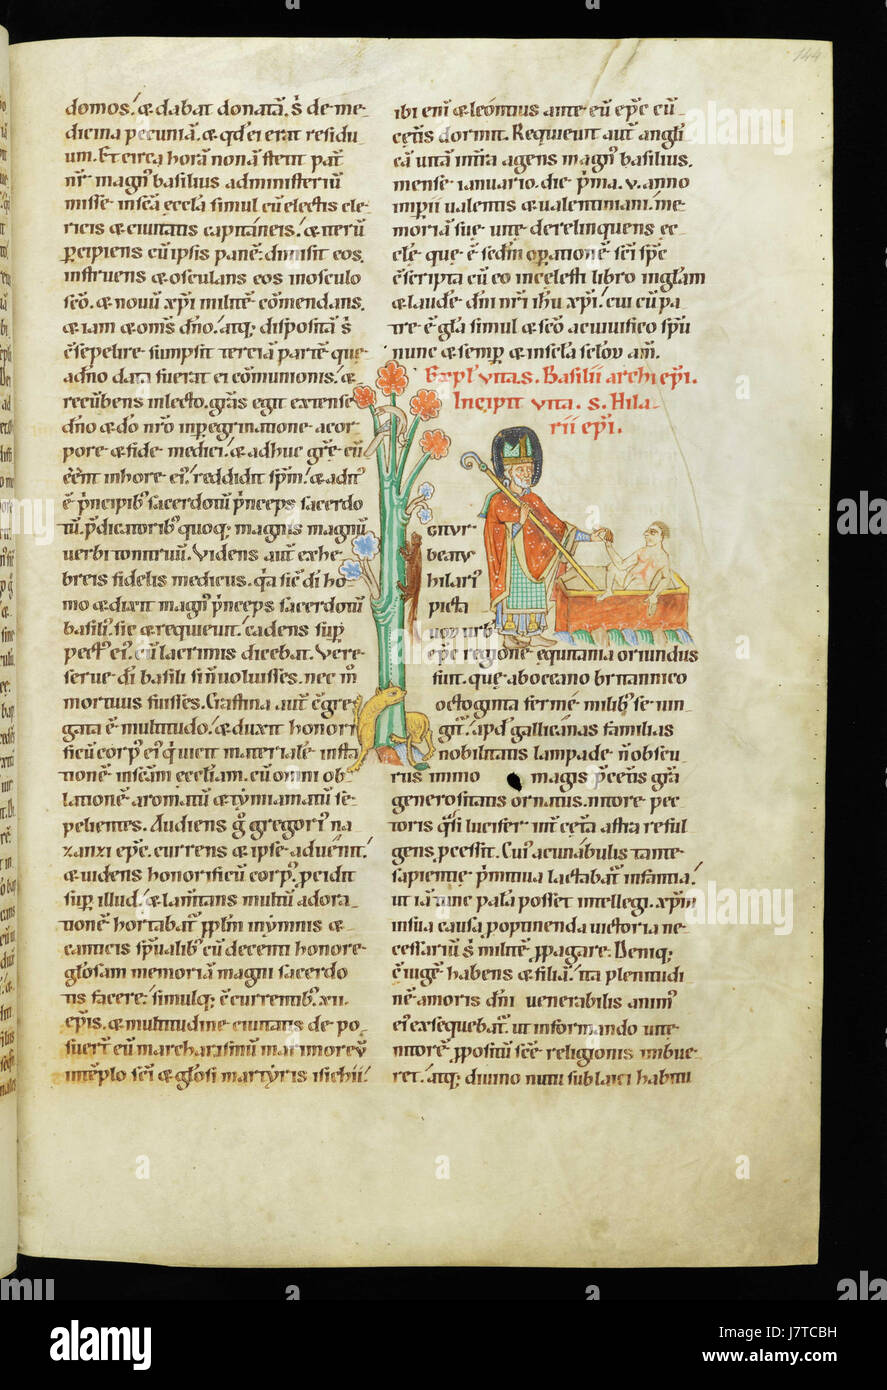 domos. & dabat donatā. s̄ de me-
dicina pecuniā. & qd̄ ei erat residu
um. Et circa horā nonā stetit pat̄
nr̄ magn᾿ basilius administeriū
misse inscā eccl̄a simul cū electis cle-
ricis & ciuitatis capitaneis. & iterū
ꝑcipiens cū ipsis panē. dimisit eos.
instruens & osculans eos inosculo
sc̄o. & nouū xp̄i militē cōmendans.
& iam & om̄s dn̄o. atq; dispositā s̄
ēsepelire sumpsit terciā partē que
adn̄o data fuerat ei cōmunionis. &
recūbens inlecto. grās egit extense
dn̄o & dō nr̄o inꝑegrinatione acor-
pore & fide medici. & adhuc gr̄e cū
eēnt inhore ei᾿. reddidit spm̄. & adit᾿
ē p̄ncipib᾿ sacerdotū p̄nceps sacerdo
tū. p̄dicatorib᾿ quoq; magnis magnū
uerbi tonitruū. Videns aut̄ exhe
breis fidelis medicus. qa sic̄ dī ho
mo & dixit magn᾿ p̄nceps sacerdotū
basili᾿. sic & requieuit. cadens sup̄
pect᾿ ei᾿. cū lacrimis dicebat. Vere
serue dī basili si n̄uoluisses. nec m̄
mortuus fuisses. Crastina aut̄ ēgre
gata ē multitudo. & duxit honori
ficū corp᾿ ei᾿
tionē inscām eccl̄iam. cū omni ob
lationē aromatū & tymiamatū se-
pelientes. Audiens ḡ gregori᾿ na
zanzi ep̄c. currens & ipse aduenit.
& uidens honorificū corp᾿. ꝑcidit
sup̄ illud. & lam̄tans multū adora
tionē hortabat᾿ pplm̄ inymnis &
canticis spūalib᾿ cū decenti honore
glōsam memoriā magni sacerdo
tis facere. simulq; ēcurrentib᾿. xii.
ep̄is. & multitudine ciuitatis de po
suert̄ eū
intēplo scī & glōsi martyris
ibi eni᾿ & leontius ante eū ep̄c cū
cetīs dormit. Requieuit aut̄ angli
cā uitā īnt̄ra agens magn᾿ basilius.
mense ianuario. die p̄ma. v. anno
imp̄ii ualentis & ualentiniani. me
moriā sue uite derelinquens ec
cl̄e. que ē sedm̄ opationē sc̄i sp̄c
ēscripta cū eo incelesti libro inglām
& laudē dn̄i nr̄i ih̄u xp̄i. cui cū pa
tre ē glā simul & sc̄o acuiuifico spū
nunc & semp̄ & insclā sclōꝝ am̄.
Expl᾿ vita. s. Basilii archi ep̄i.
Incipit vita. s. Hila-
rii ep̄i.
Igitur
beatus
hilari᾿
picta
uoꝝ urb᾿
ep̄c regione equitania oriundus
fuit. que aboccano britannico
octoginta fermē milib᾿ seiun
git᾿. apd᾿ gallicanas familias
nobilitatis lampade n̄obscu
rus immo magis p̄cetīs grā
generositatis ornatus. nitore pec
toris qsi lucifer int̄ ceta astra reful
gens ꝓcessit. Cui᾿ acunabulis tante
sapientie p̄mitiua lactabat᾿ infantia.
ut iā tunc palā posset intellegi. xp̄m
insua causa poptinenda uictoria ne
cessariū s̄ militē ꝓpagare. Deniq;
ēiugē habens & filiā. ita plenitudi
nē amoris dn̄i uenerabilis animi᾿
ei᾿ exsequebat᾿. ut informando uite
nitorē ꝓpositū scē religionis imbue
ret. atq; diuino nutu sub laici habitu
144
alamy
J7TCBH
www.alamy.com